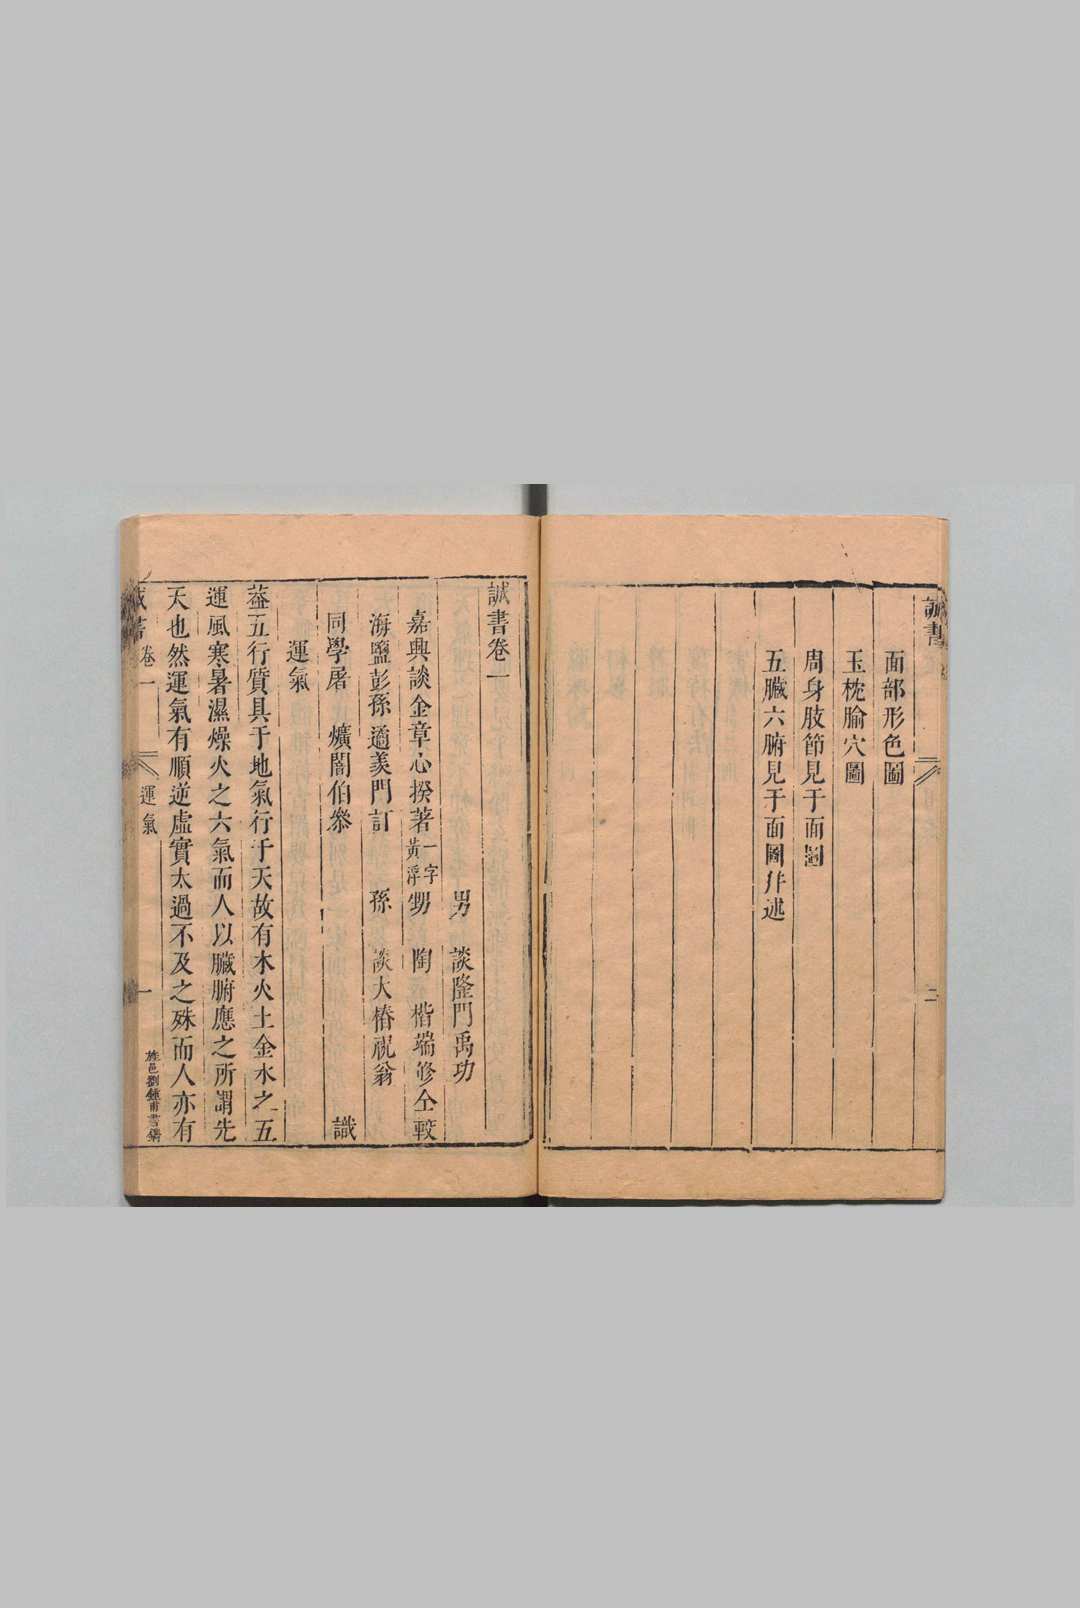 誠書
二
面部形色圖
玉枕腧穴圖
周身肢節見于面圖
五臟六腑見于面圖幷述
誠書卷一
男 談隆門禹功
嘉興談金章心揆著一字黃浮 甥 陶 楷端修仝較
海鹽彭孫遹羨門訂 孫 談大椿祝翁
同學屠 爌闇伯叅 識
運氣
葢五行質具于地氣行于天故有木火土金水之五
運風寒暑濕燥火之六氣而人以臟腑應之所謂先
天也然運氣有順逆虛實太過不及之殊而人亦有
誠書 卷一 運氣 一
旌邑劉鍾甫書鐫